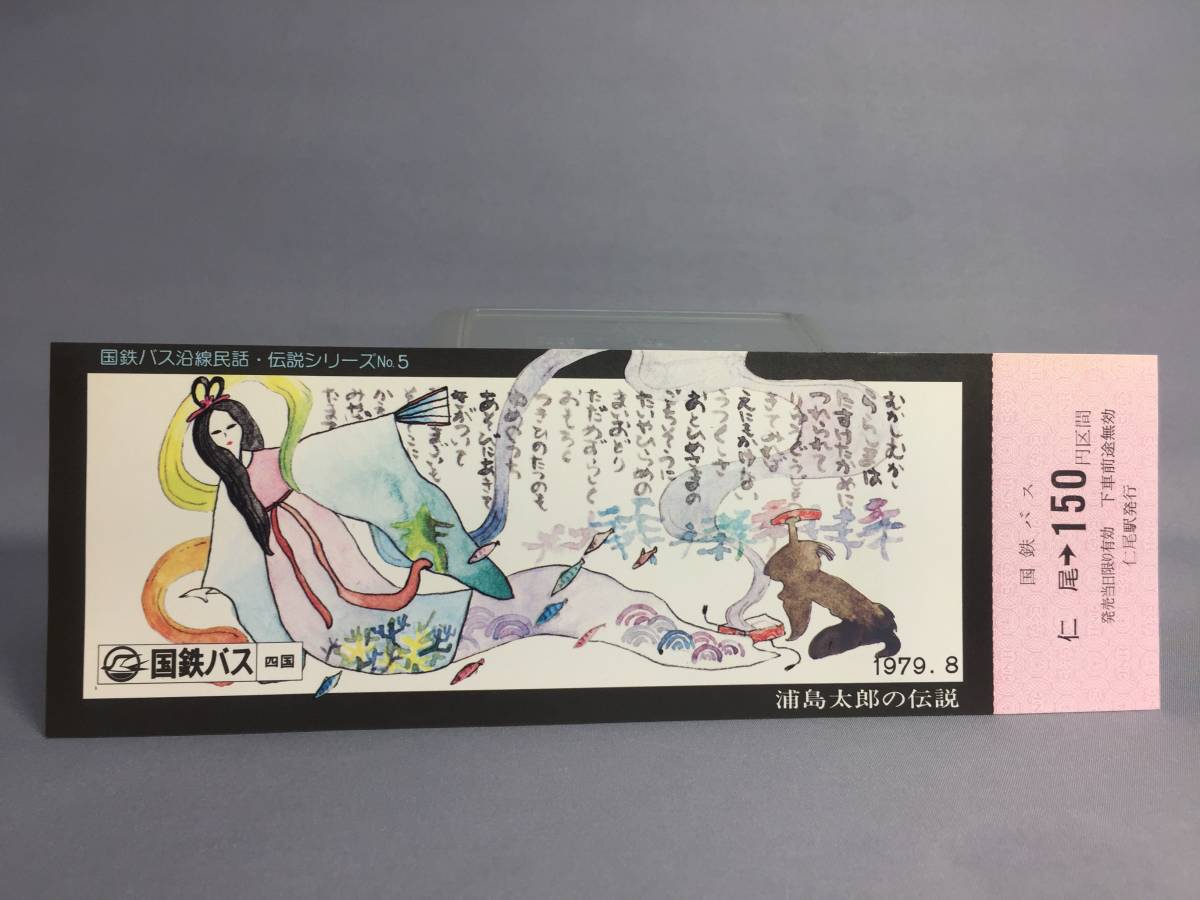 国鉄バス沿線民話・伝説シリーズNo.5
むかしむかし
うらしまは
たすけたかめに
つれられて
りゅうぐうじょうへ
きてみれば
えにもかけない
うつくしさ
おとひめさまの
ごちそうに
たいやひらめの
まいおどり
ただめずらしく
おもしろく
つきひのたつのも
ゆめのうち
あそびにあきて
きがついて
国鉄バス 四国
1979.8
浦島太郎の伝説
国鉄バス
仁尾→150円区間
発売当日限り有効 下車前途無効
仁尾駅発行